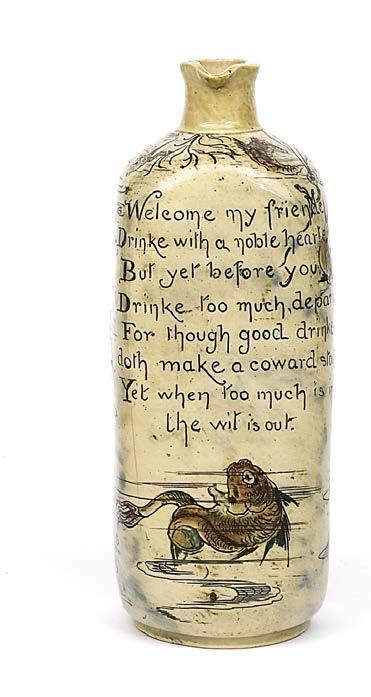 Welcome my friends
Drinke with a noble hearte
But yet before you
Drinke too much, depar
For though good drinke
doth make a coward sto
Yet when too much is
the wit is out.